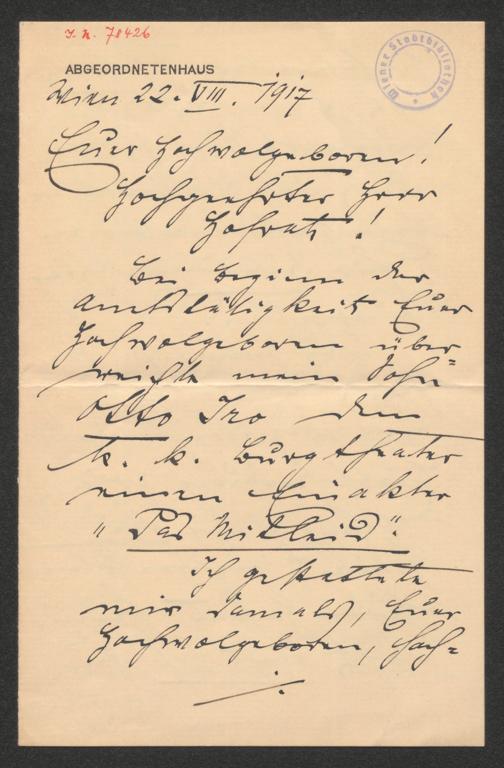 I. N. 78426
Wiener Stadtbibliothek
ABGEORDNETENHAUS
Wien 22. VIII. 1917
Euer Hochwolgeboren!
Hochgeehrter Herr
Hofrat!
Bei Beginn der
Amtstätigkeit Euer
Hochwolgeboren über=
reichte mein Sohn
Otto Iro dem
k. k. Burgtheater
einen Einakter
"Das Mitleid".
Ich gestattete
mir damals, Euer
Hochwolgeboren, hoch=
./.